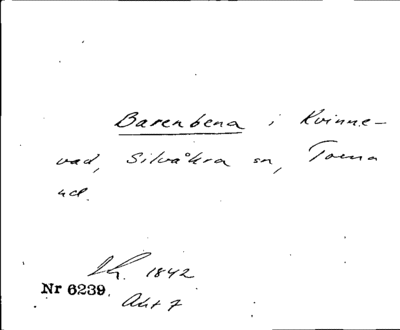 Barenbena i Kvinne-
vad, Silvåkra sn, Torna
hd.
Sk. 1842
Nr 6239.
Akt 7